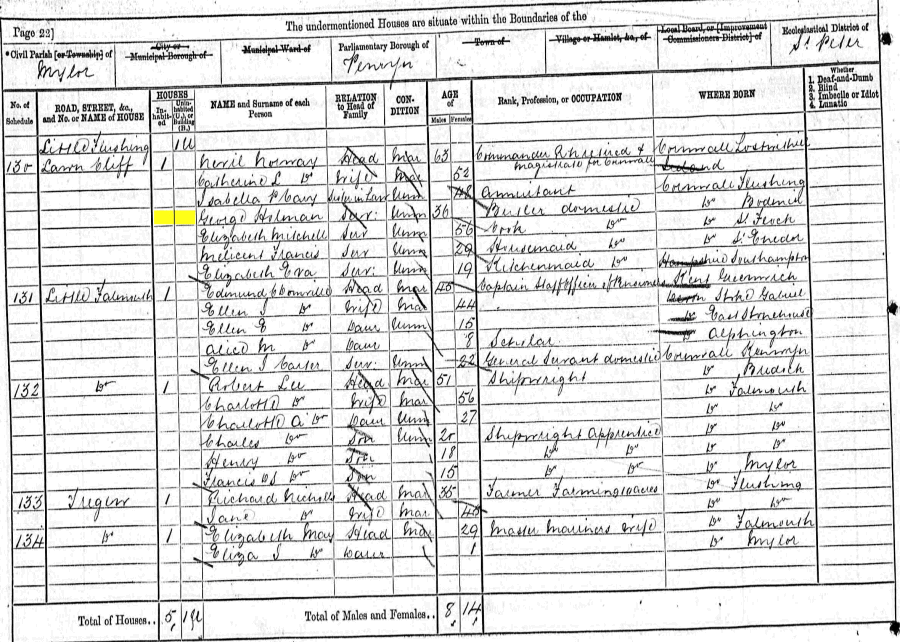 Page 22]
The undermentioned Houses are situate within the Boundaries of the
*Civil Parish [or Township] of
Mylor
City or
Municipal Borough of
Municipal Ward of
Parliamentary Borough of
Penryn
Town of
Village or Hamlet, &c., of
Local Board, or [Improvement
Commissioners District] of
Ecclesiastical District of
St Peter
No. of Schedule
ROAD, STREET, &c., and No. or NAME of HOUSE
HOUSES
In-habit-ed
Unin-habited (U.), or Building (B.)
NAME and Surname of each Person
RELATION to Head of Family
CON-DITION
AGE of
Males
Females
Rank, Profession, or OCCUPATION
WHERE BORN
Whether
1. Deaf-and-Dumb
2. Blind
3. Imbecile or Idiot
4. Lunatic
Little Flushing 1U
130 Lawn Cliff 1 Nevil Norway Head Mar 63 Commander RN retired & magistrate for Cornwall Cornwall Lostwithiel
Catherine L Do Wife Mar 52
Isabella P Cary Sister in Law Unm 48 Annuitant Cornwall Flushing
George Holman Serv: Unm 36 Butler domestic Do Bodmin
Elizabeth Mitchell Serv Unm 56 Cook Do Do St Feock
Melicent Francis Serv Unm 29 Housemaid Do Do St Enodor
Elizabeth Eva Serv: Unm 19 Kitchenmaid Do Southampton
131 Little Falmouth 1 Edmund C Head Mar 45 Captain Staff Officer of Pensioners Kent Greenwich
Ellen S Do Wife Mar 44 Stoke Gabriel
Ellen E Do Daur Unm 15 Do East Stonehouse
Alice M Do Daur 8 Scholar Do Alphington
Ellen J Carter Serv: Unm 22 General Servant domestic Cornwall Kenwyn
132 Do 1 Robert Lee Head Mar 51 Shipwright Do Budock
Charlotte Do Wife Mar 56 Do Falmouth
Charlotte A Do Daur Unm 27 Do Do
Charles Do Son Unm 20 Shipwright Apprentice Do Do
Henry Do Son 18 Do Do Do Do
Francis Do Son 15 Do Do Do Mylor
133 Tregew 1 Richard Nicholls Head Mar 35 Farmer Farming acres Do Flushing
Jane Do Wife Mar 40 Do Do
134 Do 1 Elizabeth May Head Mar 29 Master Mariners Wife Do Falmouth
Eliza J Do Daur 1 Do Mylor
Total of Houses.. 5 1U
Total of Males and Females.. 8 14